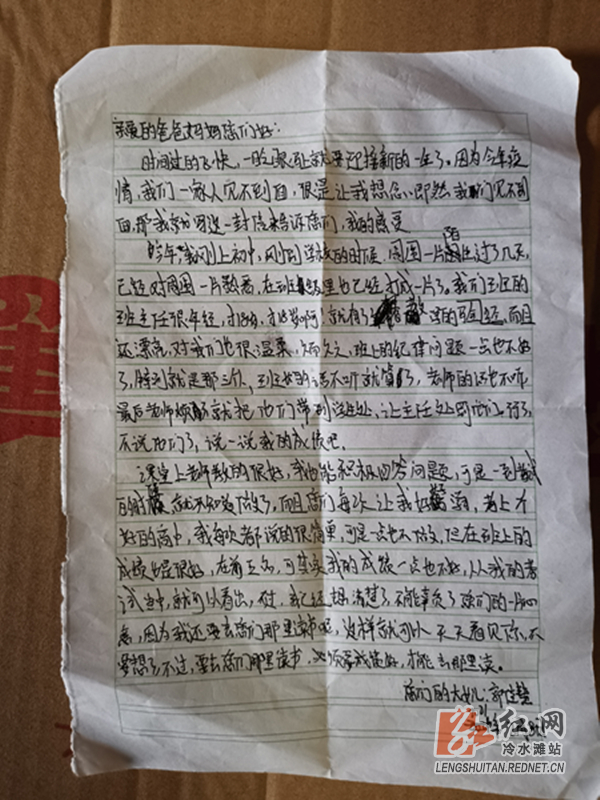 亲爱的爸爸妈妈您们好:
时间过的飞快,一眨眼让就要迎接新的一年了。因为今年疫
情,我们一家人见不到面,很是让我想念,即然我们见不到
面,那我就写这一封信来告诉您们,我的感受
今年我刚上初中,刚到学校的时候,周围一片陌生过了几天,
已经对周围一片熟悉,在班级里也已经打成一片了,我们班的
班主任很年经,才18岁,才18岁啊!就有了 的马金经,而且
还漂亮,对我们也很温柔,久而久之,班上的纪律问题一点也不好
了,特别就是那三个,班长的话不听就算了,老师的话也不听,
最后老师 就把他们带到 处,让主任处罚他们。行了,
不说他们了,说一说我的成绩吧。
课堂上老师教的很好,我也能积极回答问题,可是一到
的时候就不知道做了,而且您们每次让我好好学习,考上个
好的高中,我每次都说的很简单,可是一点也不做,但在班上的
成绩也是很好,在前五名,可其实我的成绩一点也不好,从我的考
试当中,就可以看出,不过,我已经想清楚了,不能辜负了您们的一片心
意,因为我还要去您们那里读书呢,这样就可以天天看见你,不
要想了不过,要去您们那里读书,必须要成绩好,才能去那里读。
您们的大女儿:
红网
冷水滩站
LENGSHUITAN.REDNET.CN